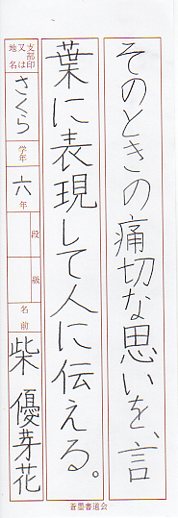 そのときの痛切な思いを、言
葉に表現して人に伝える。
支部印又は地名 さくら 学年 六年 段 級 名前 柴優芽花
蒼墨書道会